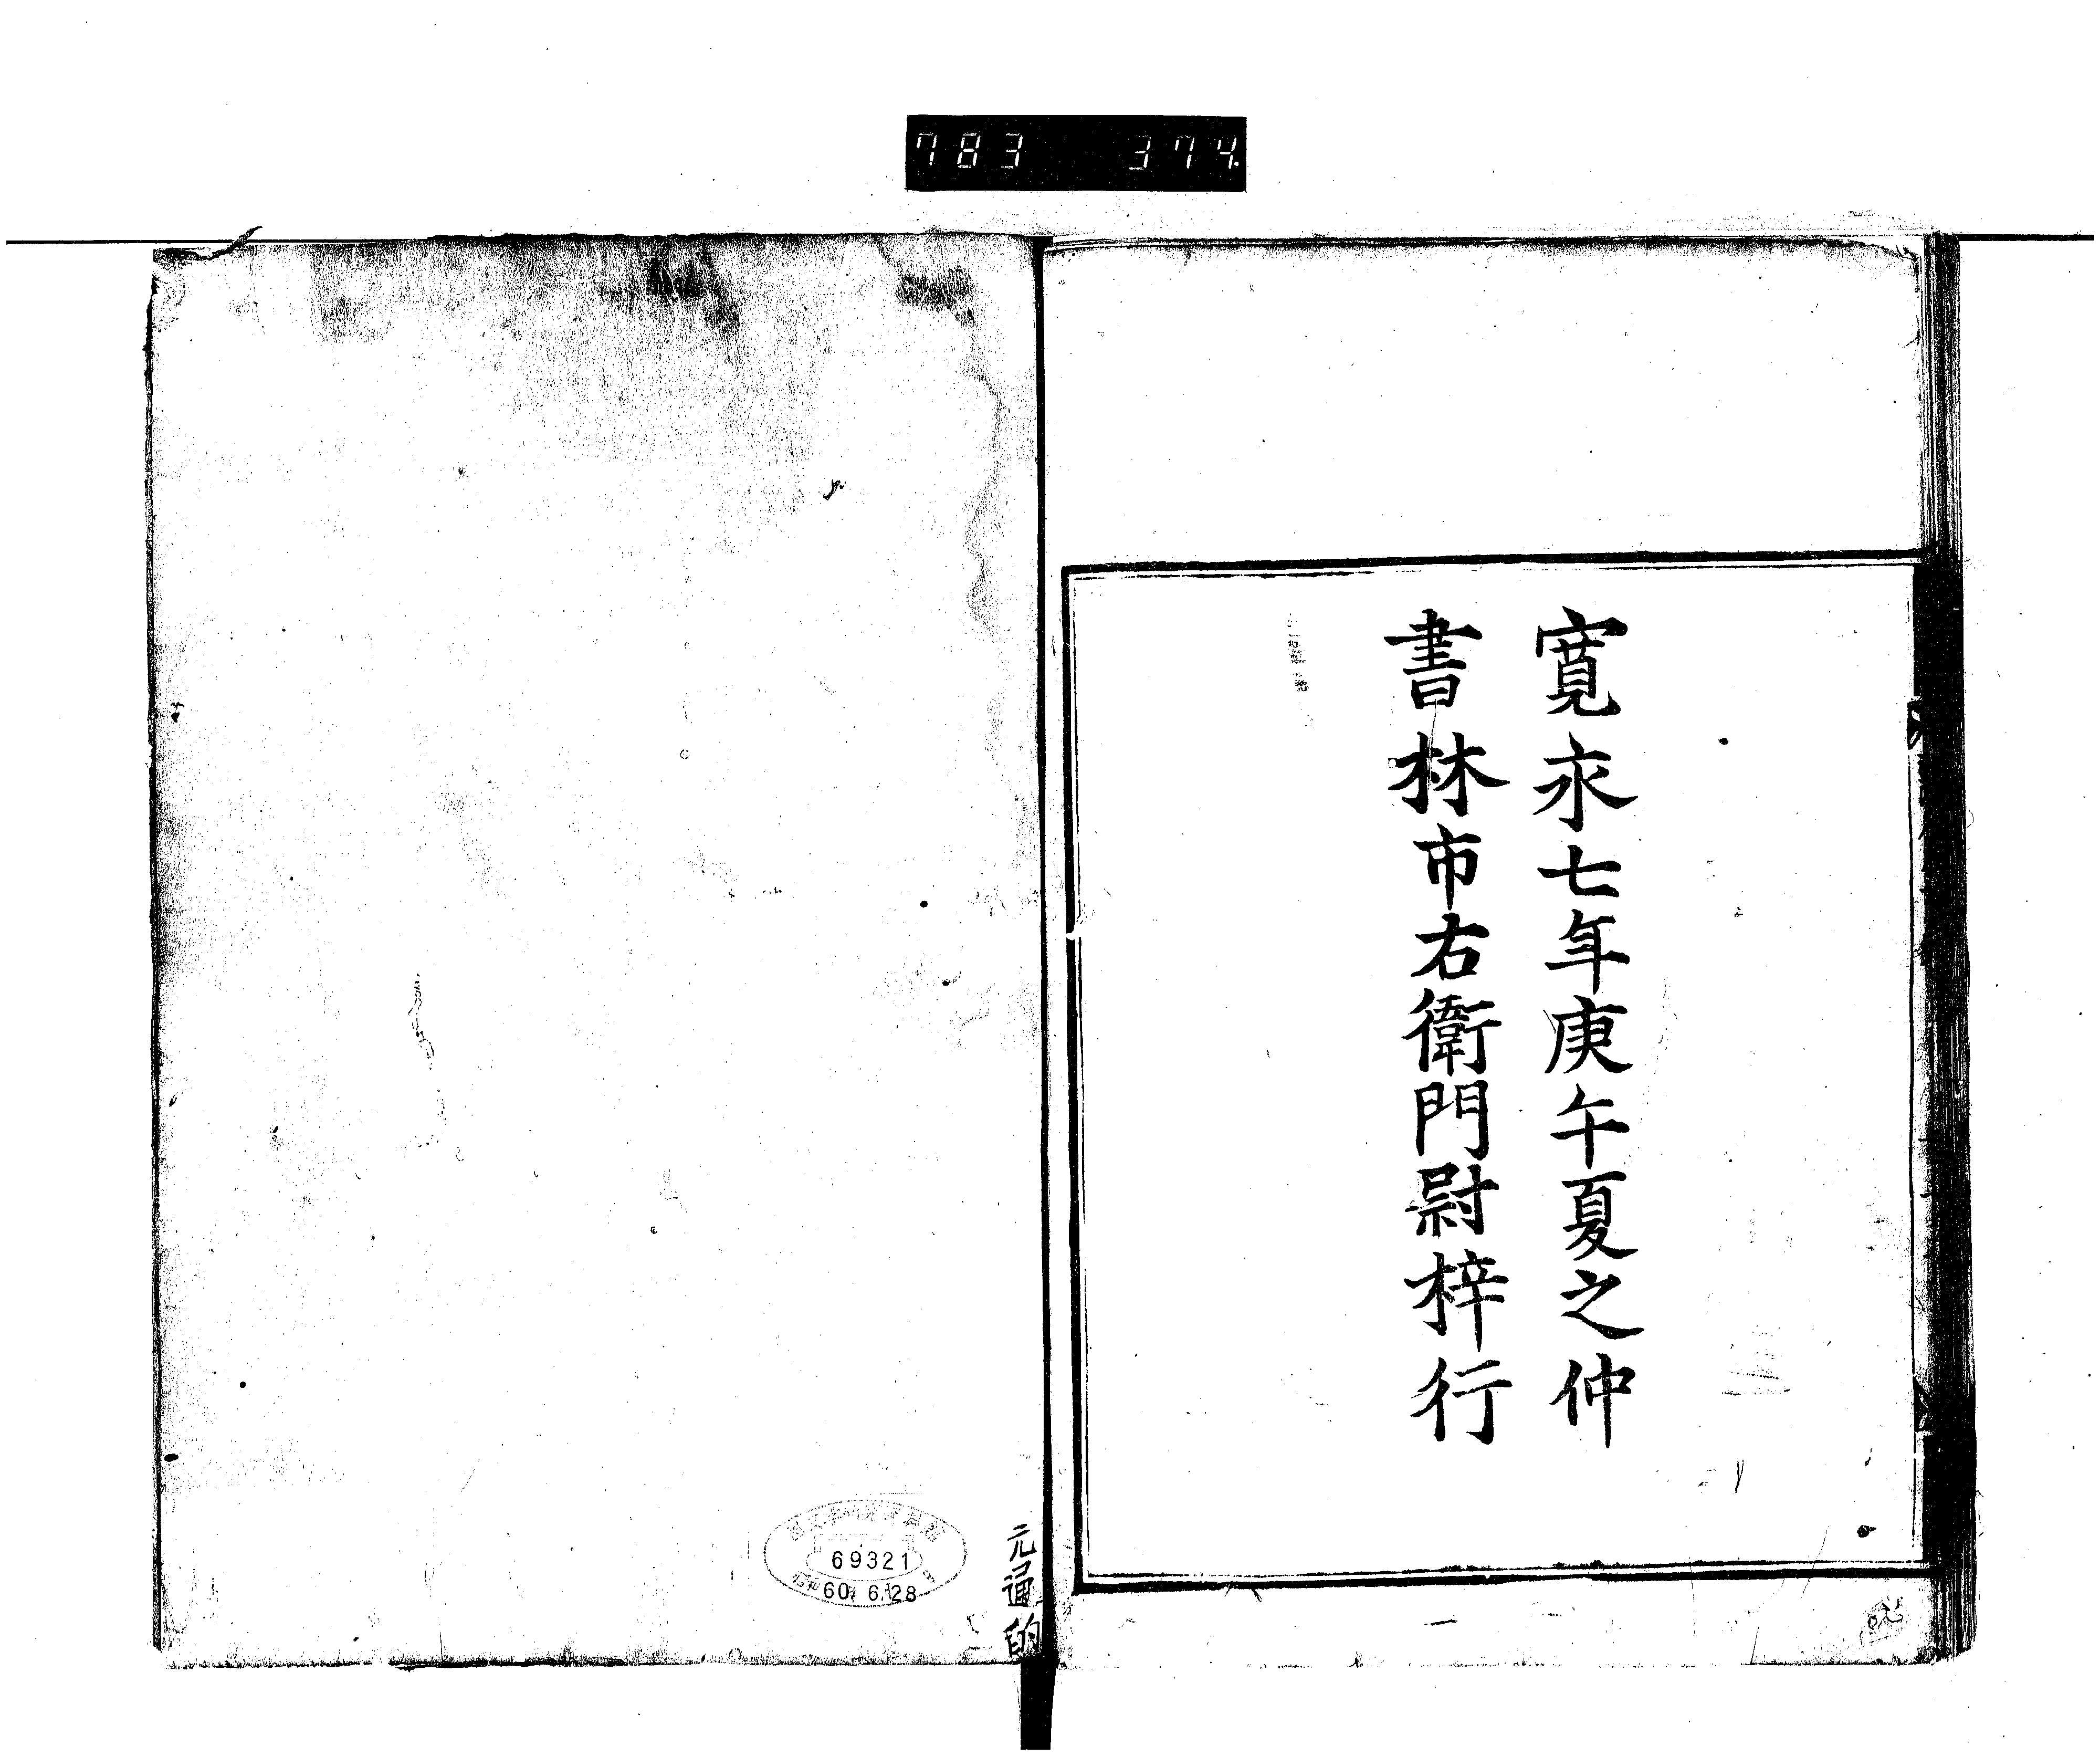 783 374
寛永七年庚午夏之仲
書林市右衛門尉梓行
元通的
69321
60. 6. 28